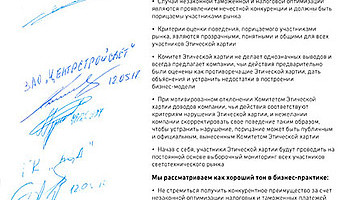 ЗАО "ЦЕНТРСТРОЙСВЕТ"
12.05.17
• Случаи незаконной таможенной и налоговой оптимизации
являются проявлением нечестной конкуренции и должны быть
порицаемы участниками рынка
• Критерии оценки поведения, порицаемого участниками
рынка, являются прозрачными, понятными и общими для всех
участников Этической хартии
• Комитет Этической хартии не делает однозначных выводов и
всегда предлагает компании, чьи действия предварительно
были оценены как противоречащие Этической хартии, дать
объяснения и устранить недостатки в построении
бизнес-модели
• При мотивированном отклонении Комитетом Этической
хартии доводов компании, чьи действия соответствуют
критериям нарушения Этической хартии, и нежелании
компании скорректировать свое поведение таким образом,
чтобы устранить нарушение, порицание может быть публичным
и официальным, вынесенным Комитетом Этической хартии
• Начав с себя, участники Этической хартии будут проводить на
постоянной основе выборочный мониторинг всех участников
светотехнического рынка
Мы рассматриваем как хороший тон в бизнес-практике:
• Не стремиться получить конкурентное преимущество за счет
незаконной оптимизации налоговых и таможенных платежей